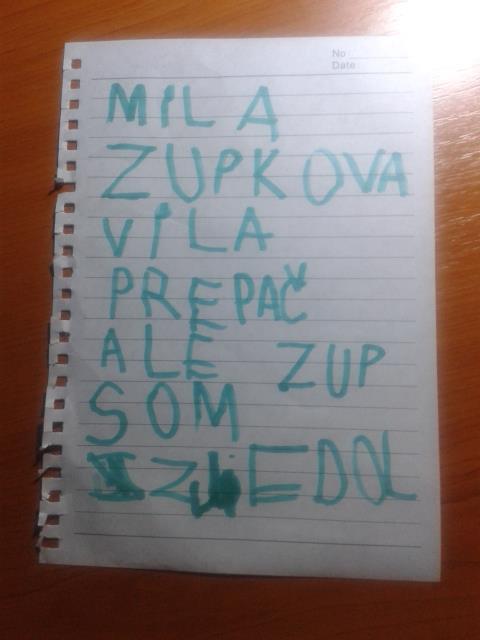 No
Date
MILA
ZUPKOVA
VILA
PREPAČ
ALE ZUP
SOM
ZJEDOL